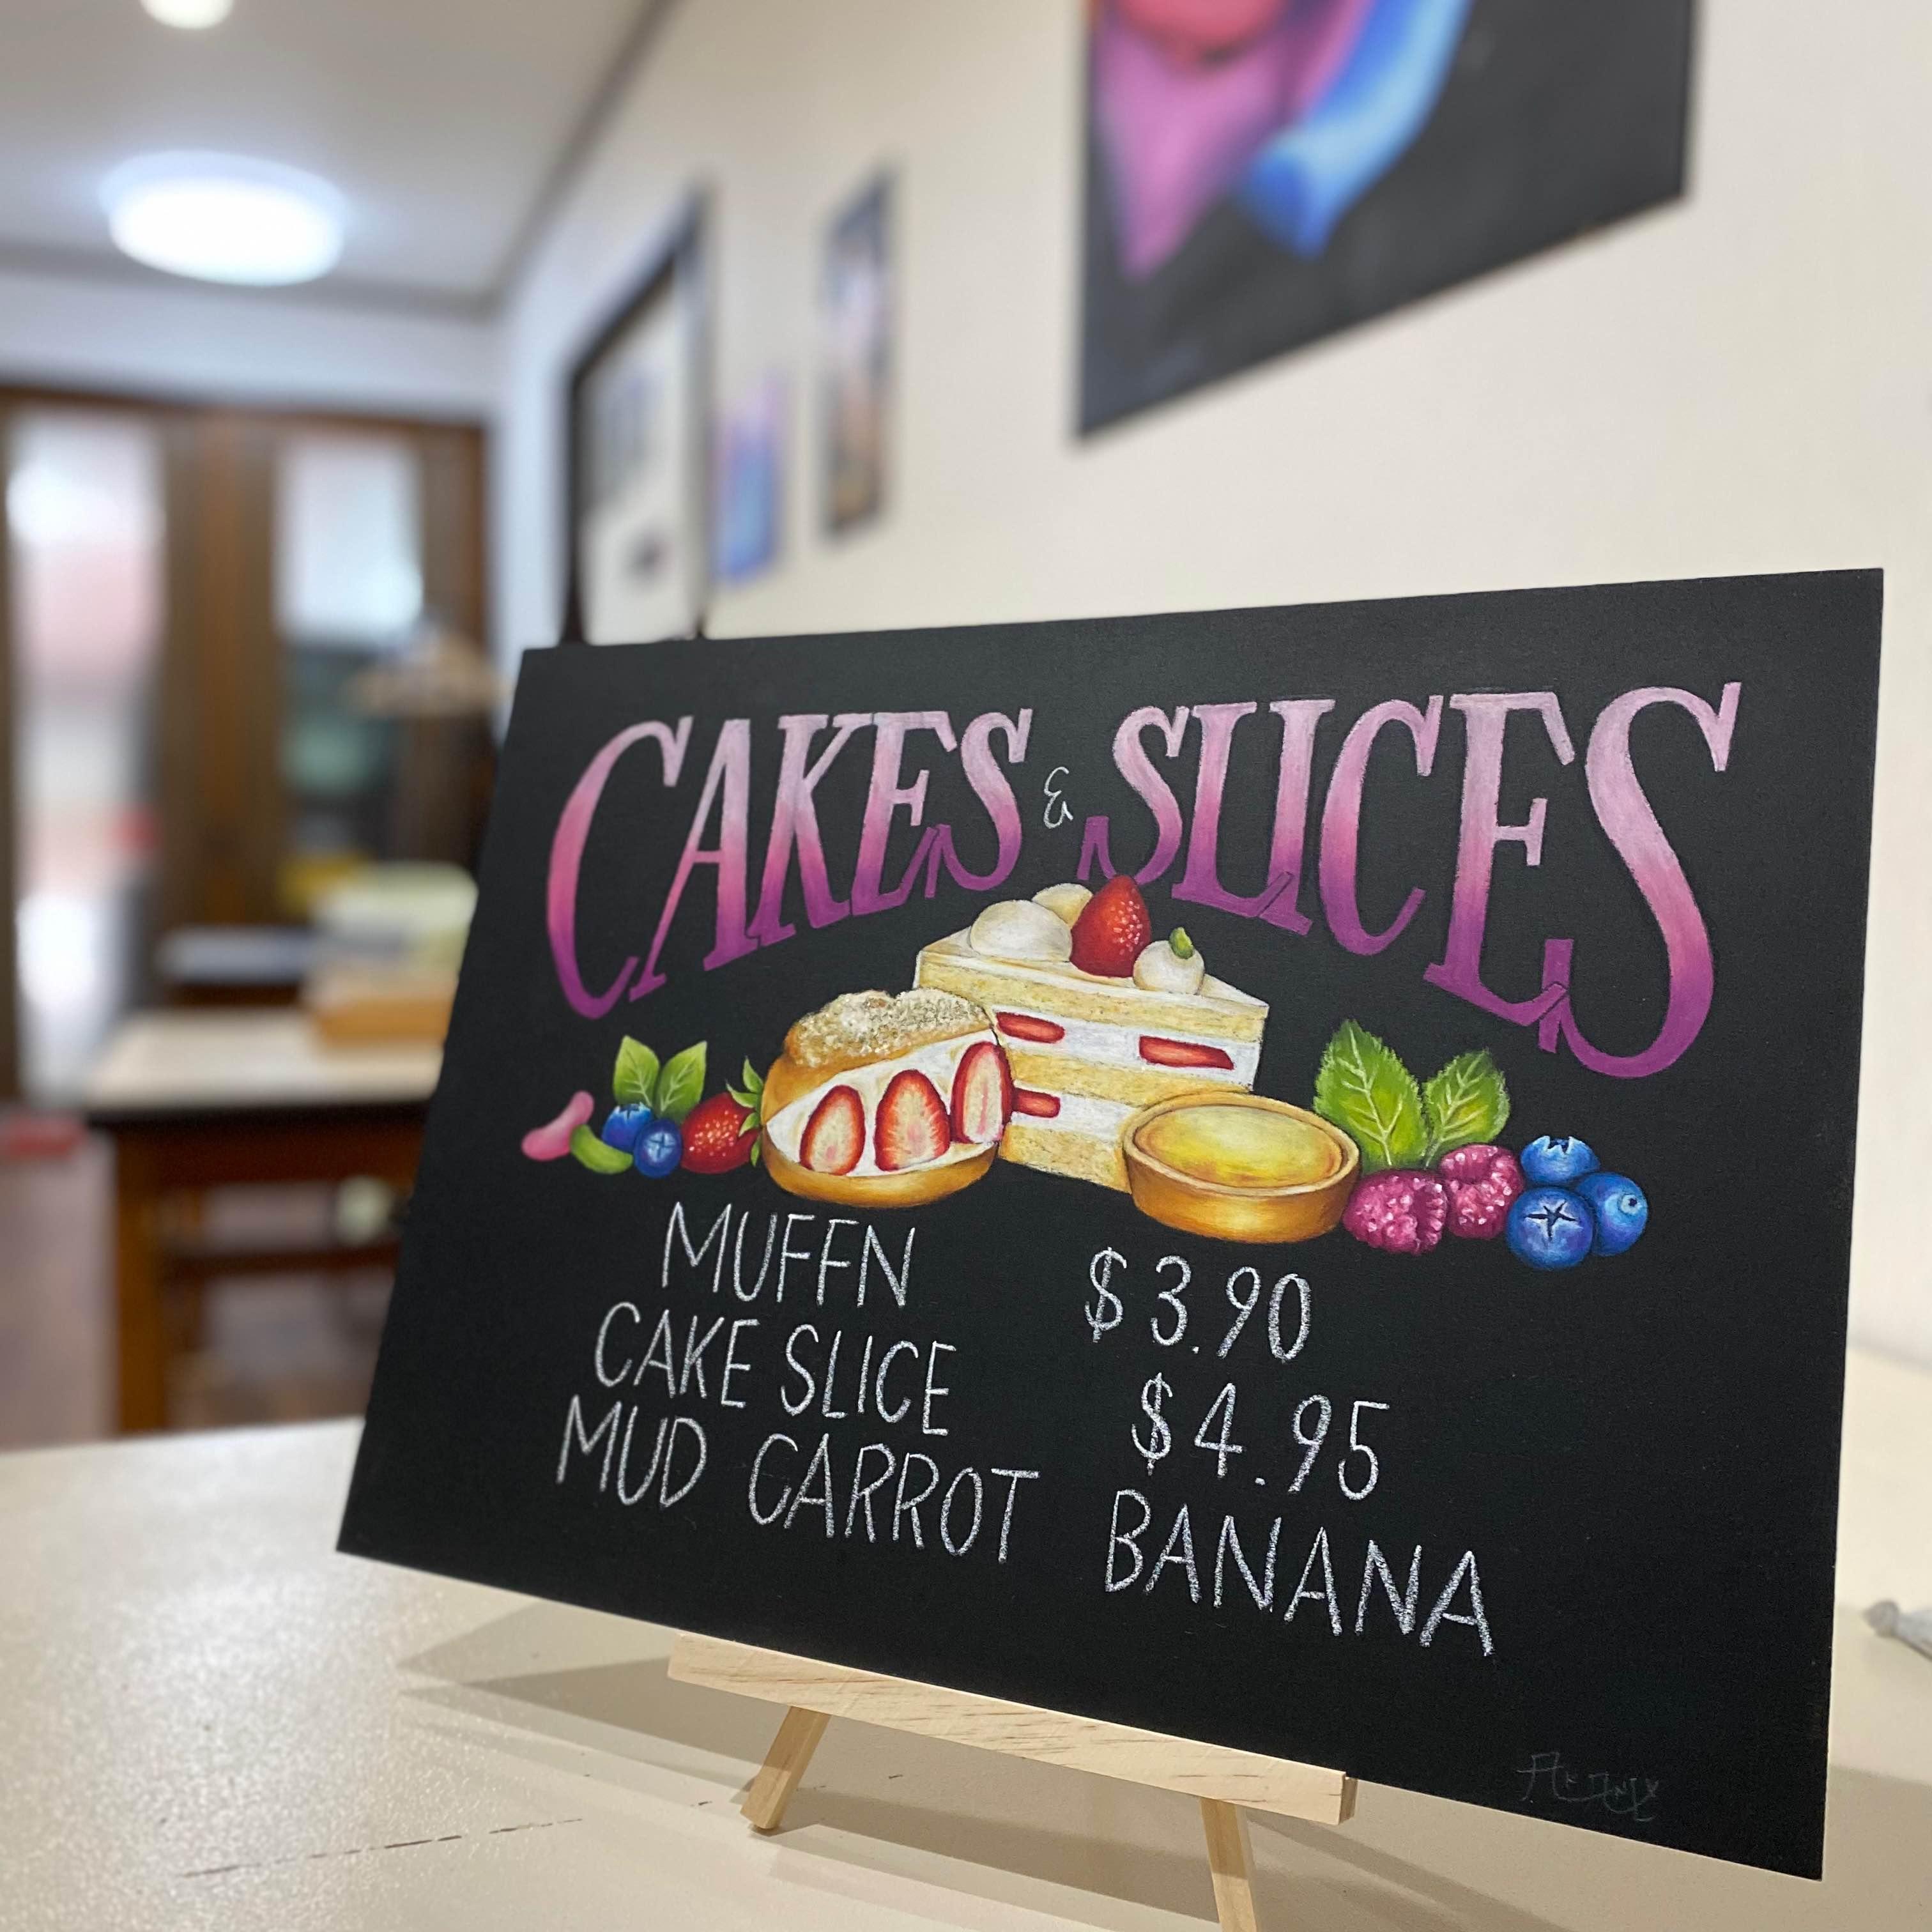 CAKES & SLICES
MUFFN $3.90
CAKE SLICE $4.95
MUD CARROT BANANA